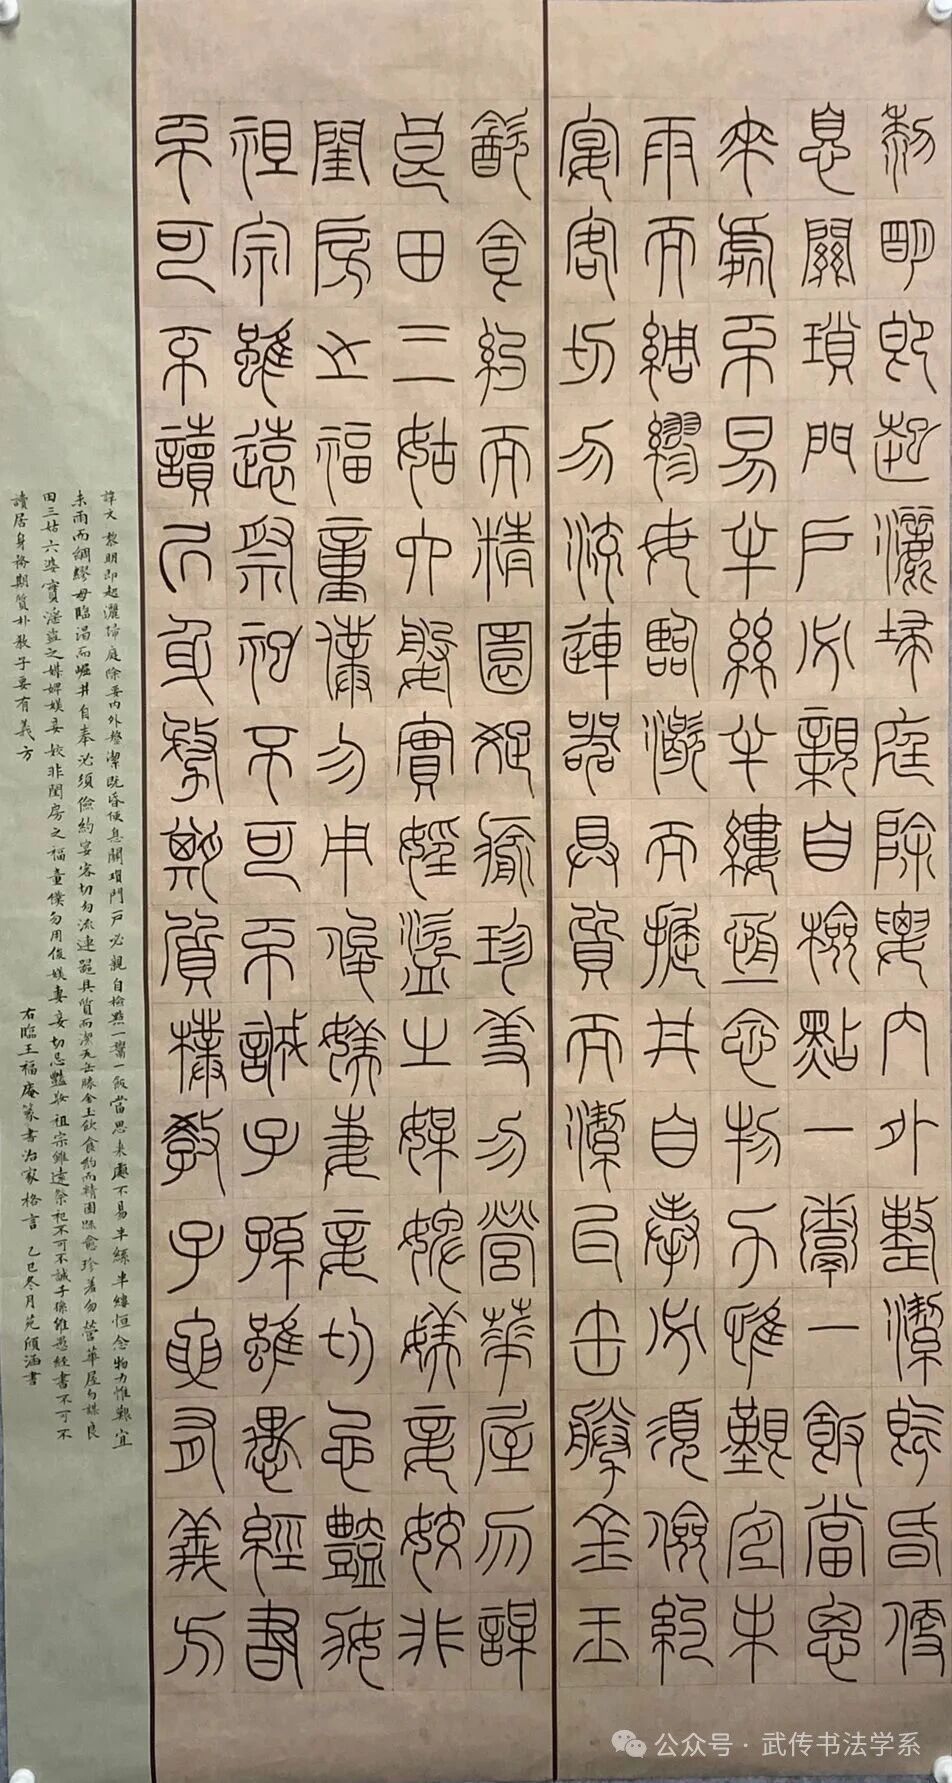 黎明即起灑埽庭除要内外整潔既昏便
息關瑣門戶必親自檢點一鬻一飯當思
來處不易半絲半縷恒念物力惟艱宜未
雨而綢繆毋臨渴而掘井自奉必須儉約
宴客切勿流連器具質而潔瓦缶勝金玉
飲食約而精園蔬愈珍羞勿營華屋勿謀
良田三姑六婆實淫盜之媒婢媄妾姣非
閨房之福童僕勿用俊媄妻妾切忌豔妝
祖宗雖遠祭祀不可不誠子孫雖愚經書
不可不讀居身務期質樸教子要有義方
譯文 黎明即起灑埽庭除要内外整潔既昏便息關瑣門戶必親自檢點一鬻一飯當思來處不易半絲半縷恒念物力惟艱宜
未雨而綢繆毋臨渴而掘井自奉必須儉約宴客切勿流連器具質而潔瓦缶勝金玉飲食約而精園蔬愈珍羞勿營華屋勿謀良
田三姑六婆實淫盜之媒婢媄妾姣非閨房之福童僕勿用俊媄妻妾切忌豔妝祖宗雖遠祭祀不可不誠子孫雖愚經書不可不
讀居身務期質朴教子要有義方
右臨王福庵篆書治家格言 乙巳冬月苑傾涵書
公众号·武传书法学系